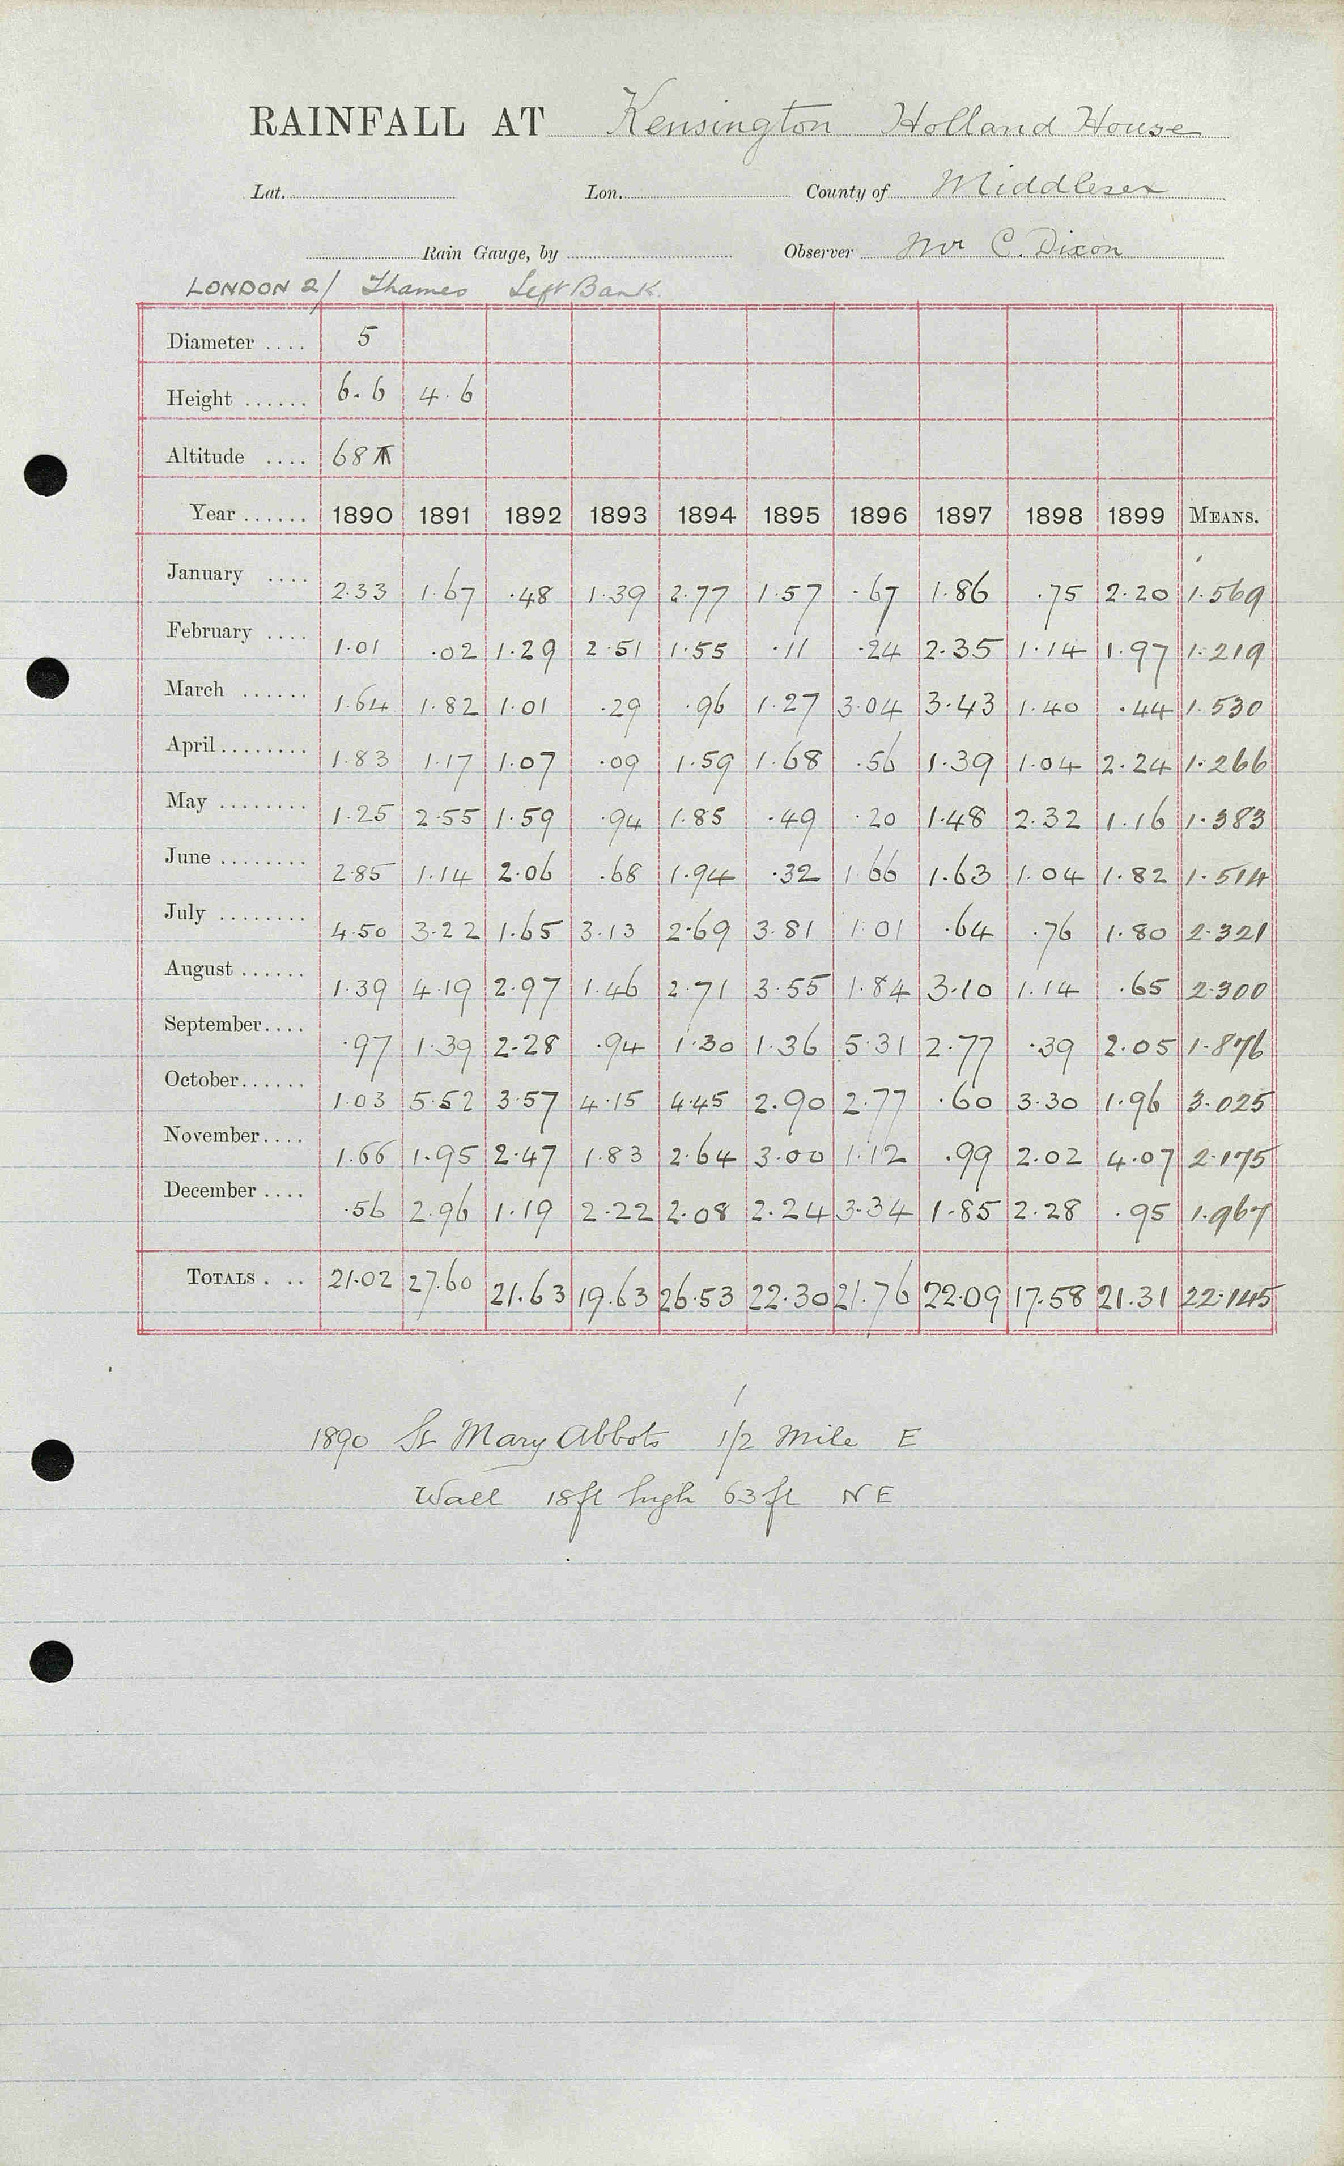 RAINFALL AT Kensington Holland House
Lat. Lon. County of Middlesex
Rain Gauge, by Observer Mr C. Dixon
LONDON 2/ Thames Left Bank.
Diameter .... 5
Height ...... 6.6 4.6
Altitude .... 68
Year ...... 1890 1891 1892 1893 1894 1895 1896 1897 1898 1899 MEANS.
January .... 2.33 1.67 .48 1.39 2.77 1.57 .67 1.86 .75 2.20 1.569
February .... 1.01 .02 1.29 2.51 1.55 .11 .24 2.35 1.14 1.97 1.219
March ...... 1.64 1.82 1.01 .29 .96 1.27 3.04 3.43 1.40 .44 1.530
April ........ 1.83 1.17 1.07 .09 1.59 1.68 .56 1.39 1.04 2.24 1.266
May ........ 1.25 2.55 1.59 .94 1.85 .49 .20 1.48 2.32 1.16 1.383
June ........ 2.85 1.14 2.06 .68 1.94 .32 1.66 1.63 1.04 1.82 1.514
July ........ 4.50 3.22 1.65 3.13 2.69 3.81 1.01 .64 .76 1.80 2.321
August ...... 1.39 4.19 2.97 1.46 2.71 3.55 1.84 3.10 1.14 .65 2.300
September .... .97 1.39 2.28 .94 1.30 1.36 5.31 2.77 .39 2.05 1.876
October ...... 1.03 5.52 3.57 4.15 4.45 2.90 2.77 .60 3.30 1.96 3.025
November .... 1.66 1.95 2.47 1.83 2.64 3.00 1.12 .99 2.02 4.07 2.175
December .... .56 2.96 1.19 2.22 2.08 2.24 3.34 1.85 2.28 .95 1.967
TOTALS . .. 21.02 27.60 21.63 19.63 26.53 22.30 21.76 22.09 17.58 21.31 22.145
1890 St Mary Abbots 1/2 Mile E
Wall 18ft high 63ft NE